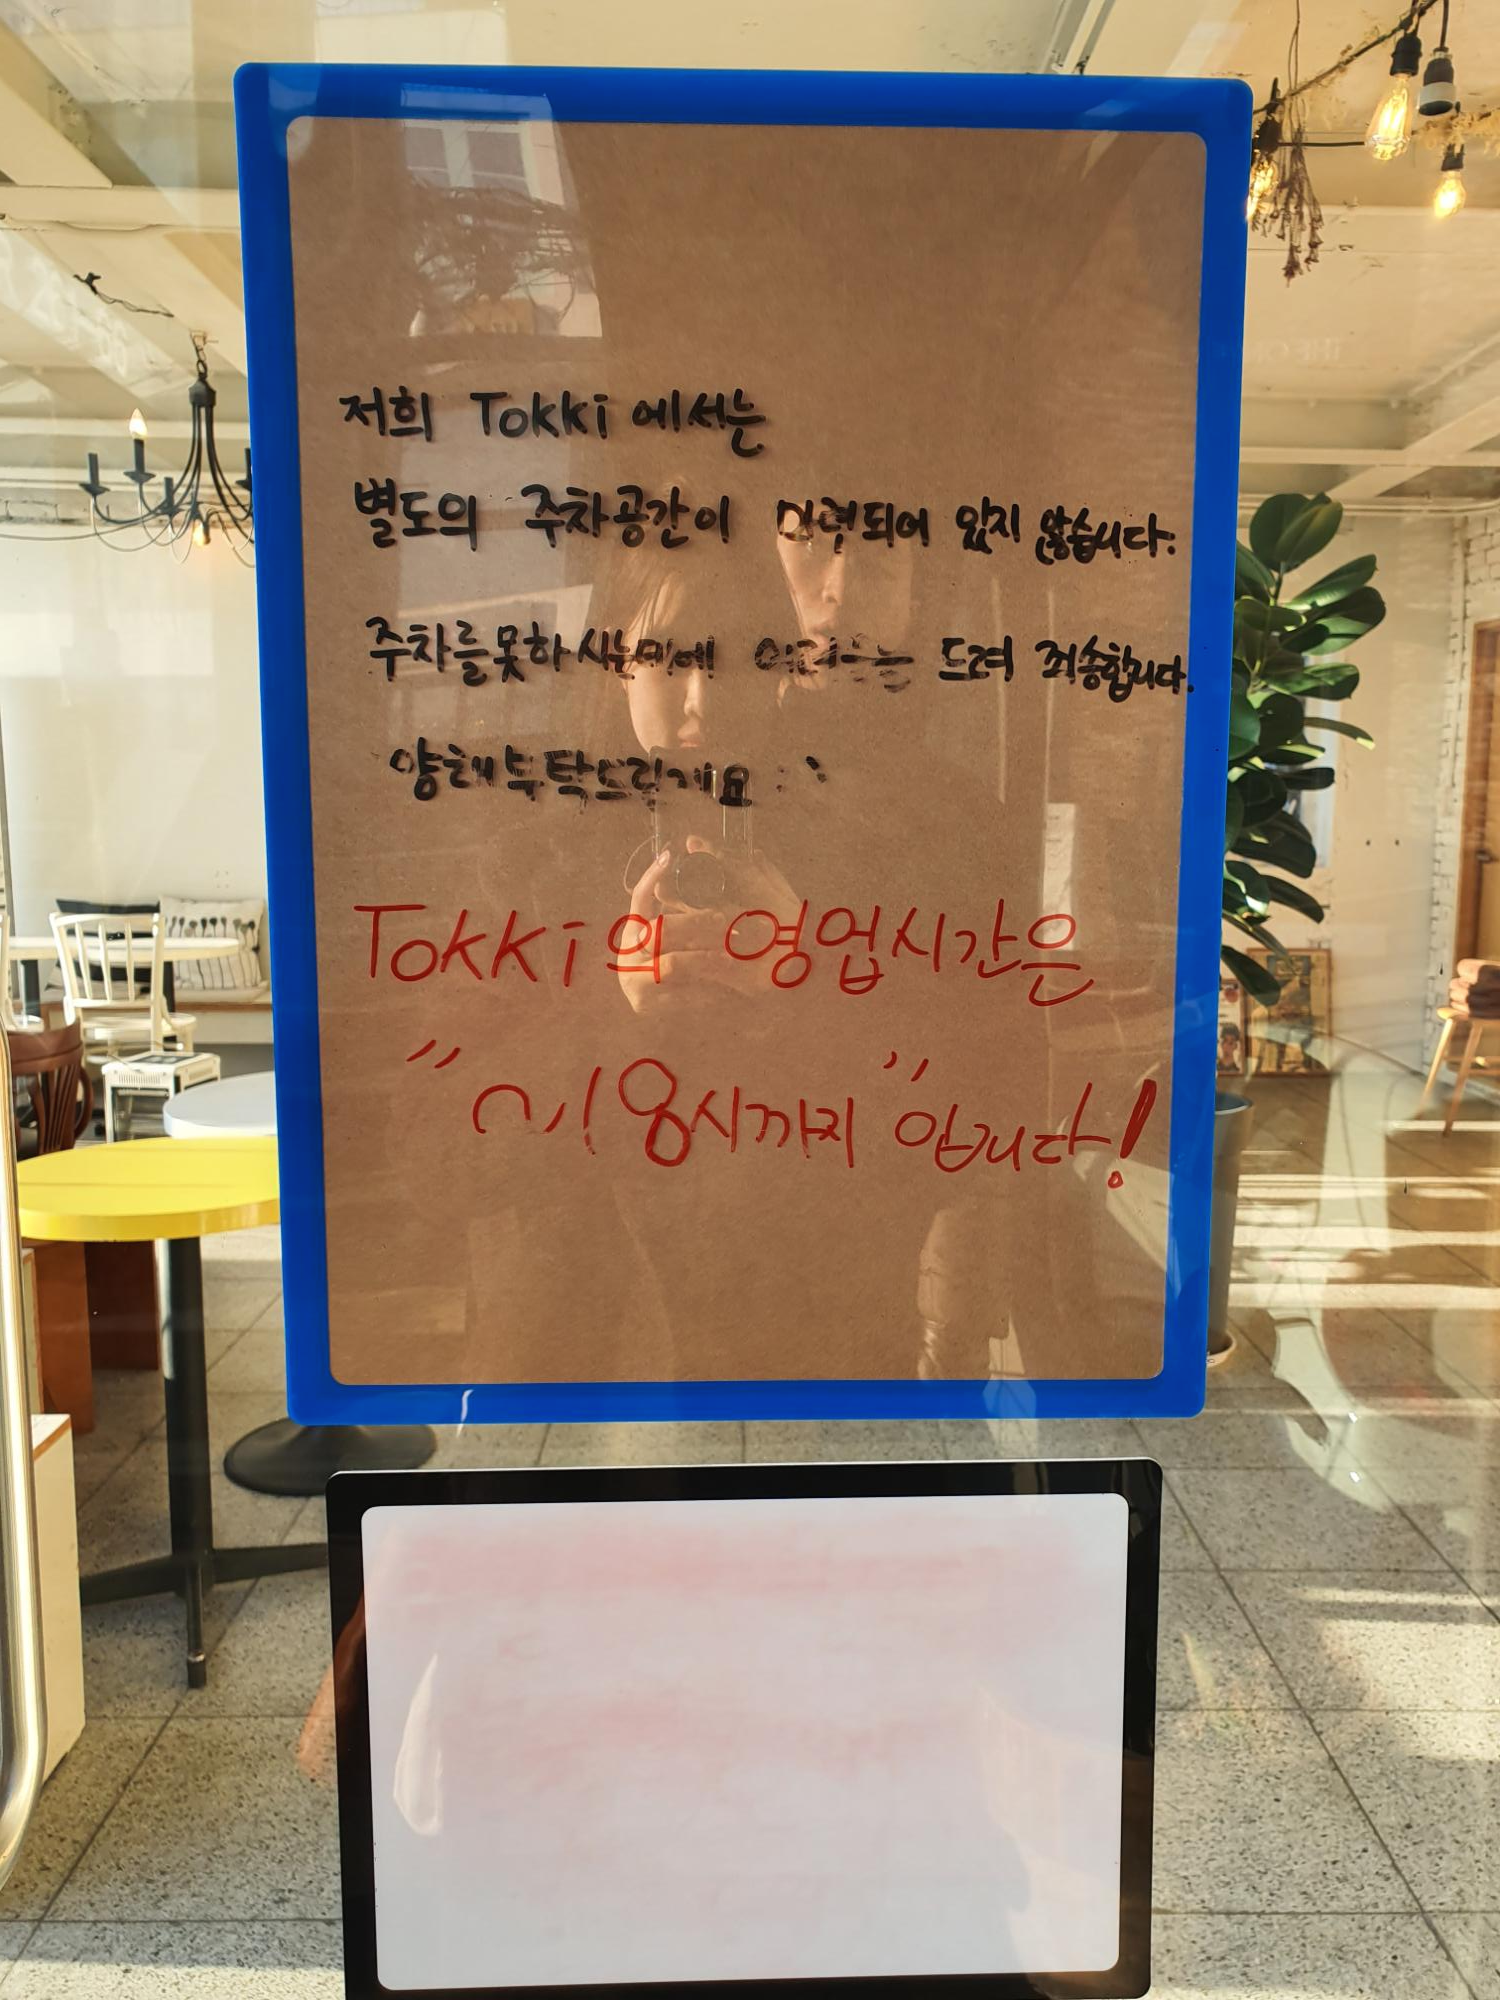 저희 Tokki 에서는
별도의 주차공간이 마련되어 있지 않습니다.
주차를 못하시는 어려움을 드려 죄송합니다.
양해부탁드릴게요
Tokki의 영업시간은
8시까지" 입니다!